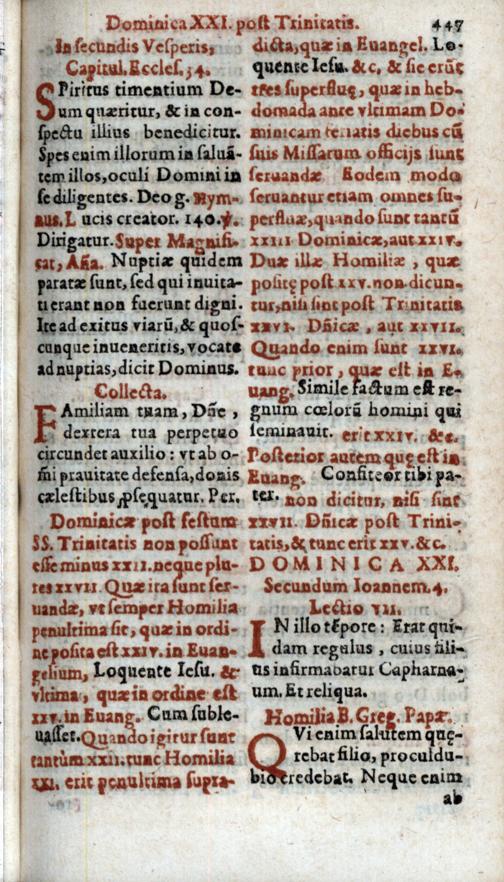 Dominica XXI. post Trinitatis. 447
In secundis Vesperis,
Capitul. Eccles. 34.
SPiritus timentium De-
um quæritur, & in con-
spectu illius benedicitur.
Spes enim illorum in saluā-
tem illos, oculi Domini in
se diligentes. Deo g. Hym-
nus. Lucis creator. 140. ℣.
Dirigatur. Super Magnifi-
cat, Aña. Nuptiæ quidem
paratæ sunt, sed qui inuita-
ti erant non fuerunt digni.
Ite ad exitus viarū, & quos-
cunque inueneritis, vocate
ad nuptias, dicit Dominus.
Collecta.
FAmiliam tuam, Dñe,
dextera tua perpetuo
circundet auxilio: vt ab o-
m̄i prauitate defensa, donis
cælestibus ꝓsequatur. Per.
Dominicæ post festum
SS. Trinitatis non possunt
esse minus XXII. neque plu-
res XXVII. Quæ ita sunt ser-
uandæ, vt semper Homilia
penultima sit, quæ in ordi-
ne posita est XXIV. in Euan-
gelium, Loquente Iesu. &
vltima, quæ in ordine est
XXV. in Euang. Cum suble-
uasset. Quando igitur sunt
tantùm XXII. tunc Homilia
XXI. erit penultima supra-
dicta, quæ in Euangel. Lo-
quente Iesu. &c. & sic erūt
tres superfluę, quæ in heb-
domada ante vltimam Do-
minicam feriatis diebus cū
suis Missarum officijs sunt
seruandæ Eodem modo
seruantur etiam omnes su-
perfluæ, quando sunt tantū
XXIII Dominicæ, aut XXIV.
Duæ illæ Homiliæ, quæ
positę post XXV. non dicun-
tur, nisi sint post Trinitatis
XXVI. Dñicæ, aut XXVII.
Quando enim sunt XXVI.
tunc prior, quæ est in E-
uang. Simile factum est re-
gnum cœlorū homini qui
seminauit. erit XXIV. &c.
Posterior autem quę est in
Euang. Confiteor tibi pa-
ter. non dicitur, nisi sint
XXVII. Dñicæ post Trini-
tatis, & tunc erit XXV. &c.
DOMINICA XXI.
Secundum Ioannem. 4.
Lectio VII.
IN illo tēpore: Erat qui-
dam regulus, cuius fili-
us infirmabatur Capharna-
um. Et reliqua.
Homilia B. Greg. Papæ.
QVi enim salutem quę-
rebat filio, proculdu-
bio credebat. Neque enim
ab